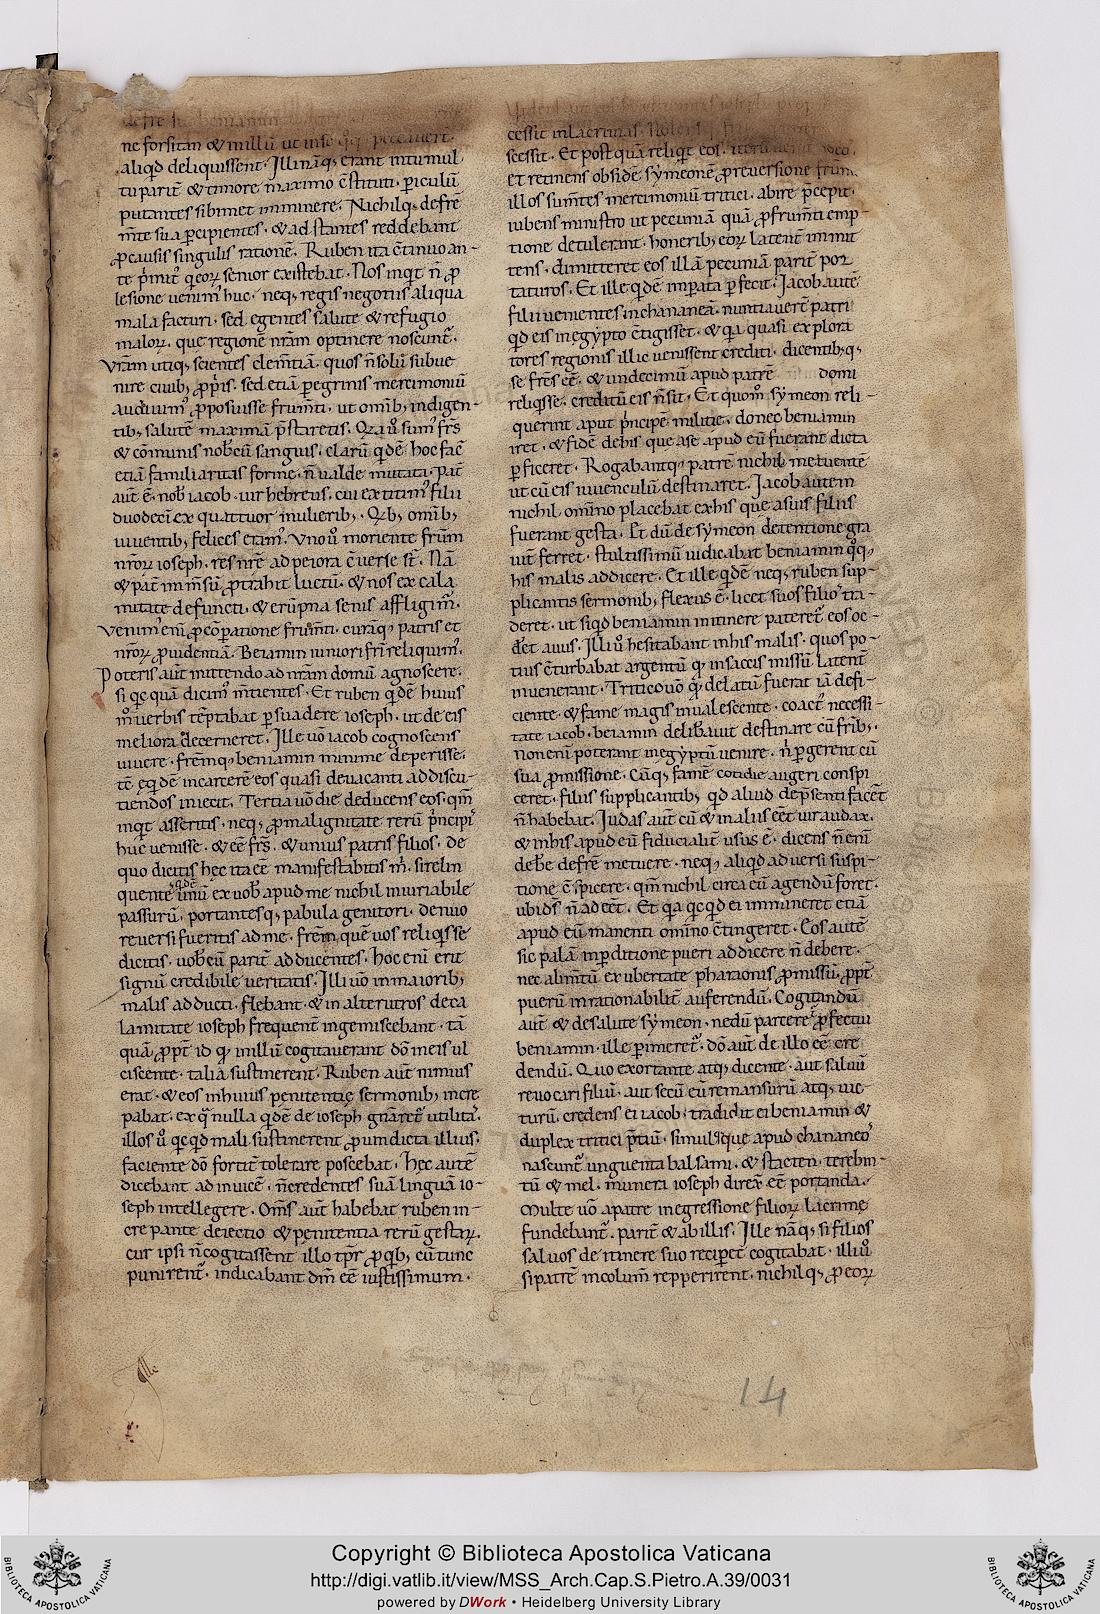 defre suo beniamin
ne forsitan & in illū ut in se q̊q; peccauer̄t.
aliqd deliquissent. Illi nāq; erant in tumul
tu pariē & timore maximo c̄stituti. periculū
putantes sibimet imminere. Nichilq; defrē
m̄te sua ꝑcipientes. & adstantes reddebant
ꝓ causis singulis rationē. Ruben ita c̄tanuo an-
te p̄mit̾ q eoꝝ senior existebat. Nos inqt n̄ ꝓ
lesione uenim̾ huc. neq; regis negotiis aliqua
mala facturi. sed egentes salute & refugio
maloꝝ. que regionē nr̄am optinere noscunt̾.
Vr̄am utiq; scientes clem̄tiā. quos n̄ solū subue
nire ciuib; ꝓpriis. sed etiā peregrinis mercimoniū
audiuim̾ ꝓposuisse frum̄ti. ut omīb; indigen-
tib; salutē maximā p̄staretis. Qđ aū sum̾ fr̄s
& cōmunis nob̄ cū sanguis. clarū qdē hoc facē
etiā familiaritas forme. n̄ ualde mutata. Pat̄
aut̄ ē. nob̄ iacob. uir hebreus. cui extitim̾ filii
duodecī ex quattuor mulierib;. Qb; omīb;
uiuentib; felices eram̾. Vno ū moriente frūm
nr̄oꝝ ioseph. res nr̄e ad peiora c̄uerse st̄. Nā
& pat̄ im̄msū ꝓtrahit luctū. & nos ex cala
mitate defuncti. & erūpna senis affligim̾.
Venim̾ enī ꝓ c̄paratione frum̄ti. curāq; patris et
nr̄oꝝ ꝓuidentiā. Beiamin iuniori frī reliquim̾.
Poteris aut̄ mittendo ad nr̄am domū agnoscere.
si qc quā dicim̾ m̄tientes. Et ruben qdē huius
m̊ uerbis tēptabat ꝑsuadere ioseph. ut de eis
meliora decerneret. Ille uō iacob cognoscens
uiuere. frēmq; beniamin minime deperisse.
tē eqdē in carcerē eos quasi deuacanti ad discu-
tiendos iniecit. Tertia uō die deducens eos. qm̄
inqt asseritis. neq; ꝓ malignitate rerū p̄ncipis
huc uenisse. & eē fr̄s. & unius patris filios. de
quo dicitis hec ita eē manifestabitis m̄. si relin
quente unū ex uob̄ apud me nichil iniuriabile
passurū. portantesq; pabula genitori. denuo
reuersi fueritis ad me. frēm quē uos reliqsse
dicitis. uob̄cū parit̄ adducentes. hoc enī erit
signū credibile ueritatis. Illi uō in maiorib;
malis adducti. flebant. & in alterutros de ca
lamitate ioseph frequent̄ ingemiscebant. tā
quā ꝓpt̄ id q in illū cogitauerant dō in eis ul
ciscente. talia sustinerent. Ruben aut̄ nimius
erat. & eos in huius penitentię sermonib; incre
pabat. ex q nulla qdē de ioseph gnāret̾ utilitas.
illos ū qcqd mali sustinerent ꝓ uindicta illius.
faciente dō fortit̄ tolerare poscebat. Hęc autē
dicebant ad inuicē. n̄ credentes suā linguā io-
seph intellegere. Oms̄ aut̄ habebat ruben in-
crepante deiectio & penitentia rerū gestaꝝ.
cur ipsi n̄ cogitassent illo tp̄r ꝓ qb; eū tunc
punirent̾. indicabant dm̄ eē iustissimum.
cessit in lacrimas. Nolens
scessit. Et post quā reliqt eos.
et retinens obsidē symeonē ꝓ reuersione frūm.
illos sum̄tes mercimoniū tritici. abire p̄cepit.
iubens ministro ut pecuniā quā ꝓ frum̄ti emp-
tione detulerant. honerib; eoꝝ latent̄ inmit
tens. dimitteret eos illā pecuniā parit̄ por
taturos. Et ille qdē impata ꝑfecit. Iacob autē
filii uenientes in chananeā. nuntiauer̄t patri
qd eis in egypto c̄tigisset. & qa quasi explora
tores regionis illic uenissent crediti. dicentib; q;
se fr̄es eē. & undecimū apud patrē domi
reliqsse. creditū eis n̄ sit. Et quom̊ symeon reli-
querint aput p̄ncipē militie. donec beniamin
iret. & fidē de his que a se apud eū fuerant dicta
ꝑficeret. Rogabantq; patrē nichil metuentē
ut cū eis iuuenculū destinaret. Iacob autem
nichil omīno placebat ex his que a suis filiis
fuerant gesta. Et dū de symeon detentione gra
uit̄ ferret. stultissimū iudicabat beniamin q̊q;
his malis addicere. Et ille qdē neq; ruben sup-
plicantis sermonib; flexus ē. licet suos filios tra-
deret. ut si qd beniamin in itinere pateret̾ eos oc-
cid̄et auus. Illi ū hesitabant in his malis. quos po-
tius c̄turbabat argentū q in saccis missū latent̄
inuenerant. Tritico uō q delatū fuerat iā defi-
ciente. & fame magis inualescente. coact̾ necessi-
tate iacob. beiamin deliƀauit destinare cū frīb;.
non enī poterant in egyptū uenire. n̄ pergerent cū
sua ꝓmissione. Cūq; famē cotidie augeri conspi
ceret. filiis supplicantib; qd aliud de p̄senti facēt
n̄ habebat. Iudas aut̄ cū & in aliis eēt uir audax.
& in his apud eū fiducialit̄ usus ē. dicens n̄ enī
debe de frē metuere. neq; aliqd aduersi suspi-
tione c̄spicere. qm̄ nichil circa eū agendū foret.
ubi dō n̄ adeēt. Et qa qcqd ei immineret etiā
apud eū manenti omīno c̄tingeret. Eos autē
sic palā in ꝑditione pueri addicere n̄ debere.
nec alim̄tū ex ubertate pharionis ꝓmissū. ꝓpt̄
puerū inrationabilit̄ auferendū. Cogitandū
aut̄ & de salute symeon. ne dū parcere ꝓfectui
beniamin. ille ꝑimeret̾. dō aut̄ de illo eē cre
dendū. Quo exortante atq; dicente. aut saluū
reuocari filiū. aut secū eū remansurū atq; uic-
turū. credens ei iacob. tradidit ei beniamin &
duplex tritici p̄tiū. simulq; que apud chananeos
nascunt̾ unguenta balsami. & stacten. terebin-
tū & mel. munera ioseph direx̄ eē portanda.
Multe uō a patre in egressione filioꝝ lacrime
fundebant̾. parit̄ & ab illis. Ille nāq; si filios
saluos de itinere suo recipet̄ cogitabat. illi ū
si patrē incolumē repperirent. nichilq; ꝓ eoꝝ
ille
14
Copyright © Biblioteca Apostolica Vaticana
http://digi.vatlib.it/view/MSS_Arch.Cap.S.Pietro.A.39/0031
powered by DWork • Heidelberg University Library
BIBLIOTECA APOSTOLICA VATICANA
BIBLIOTECA APOSTOLICA VATICANA